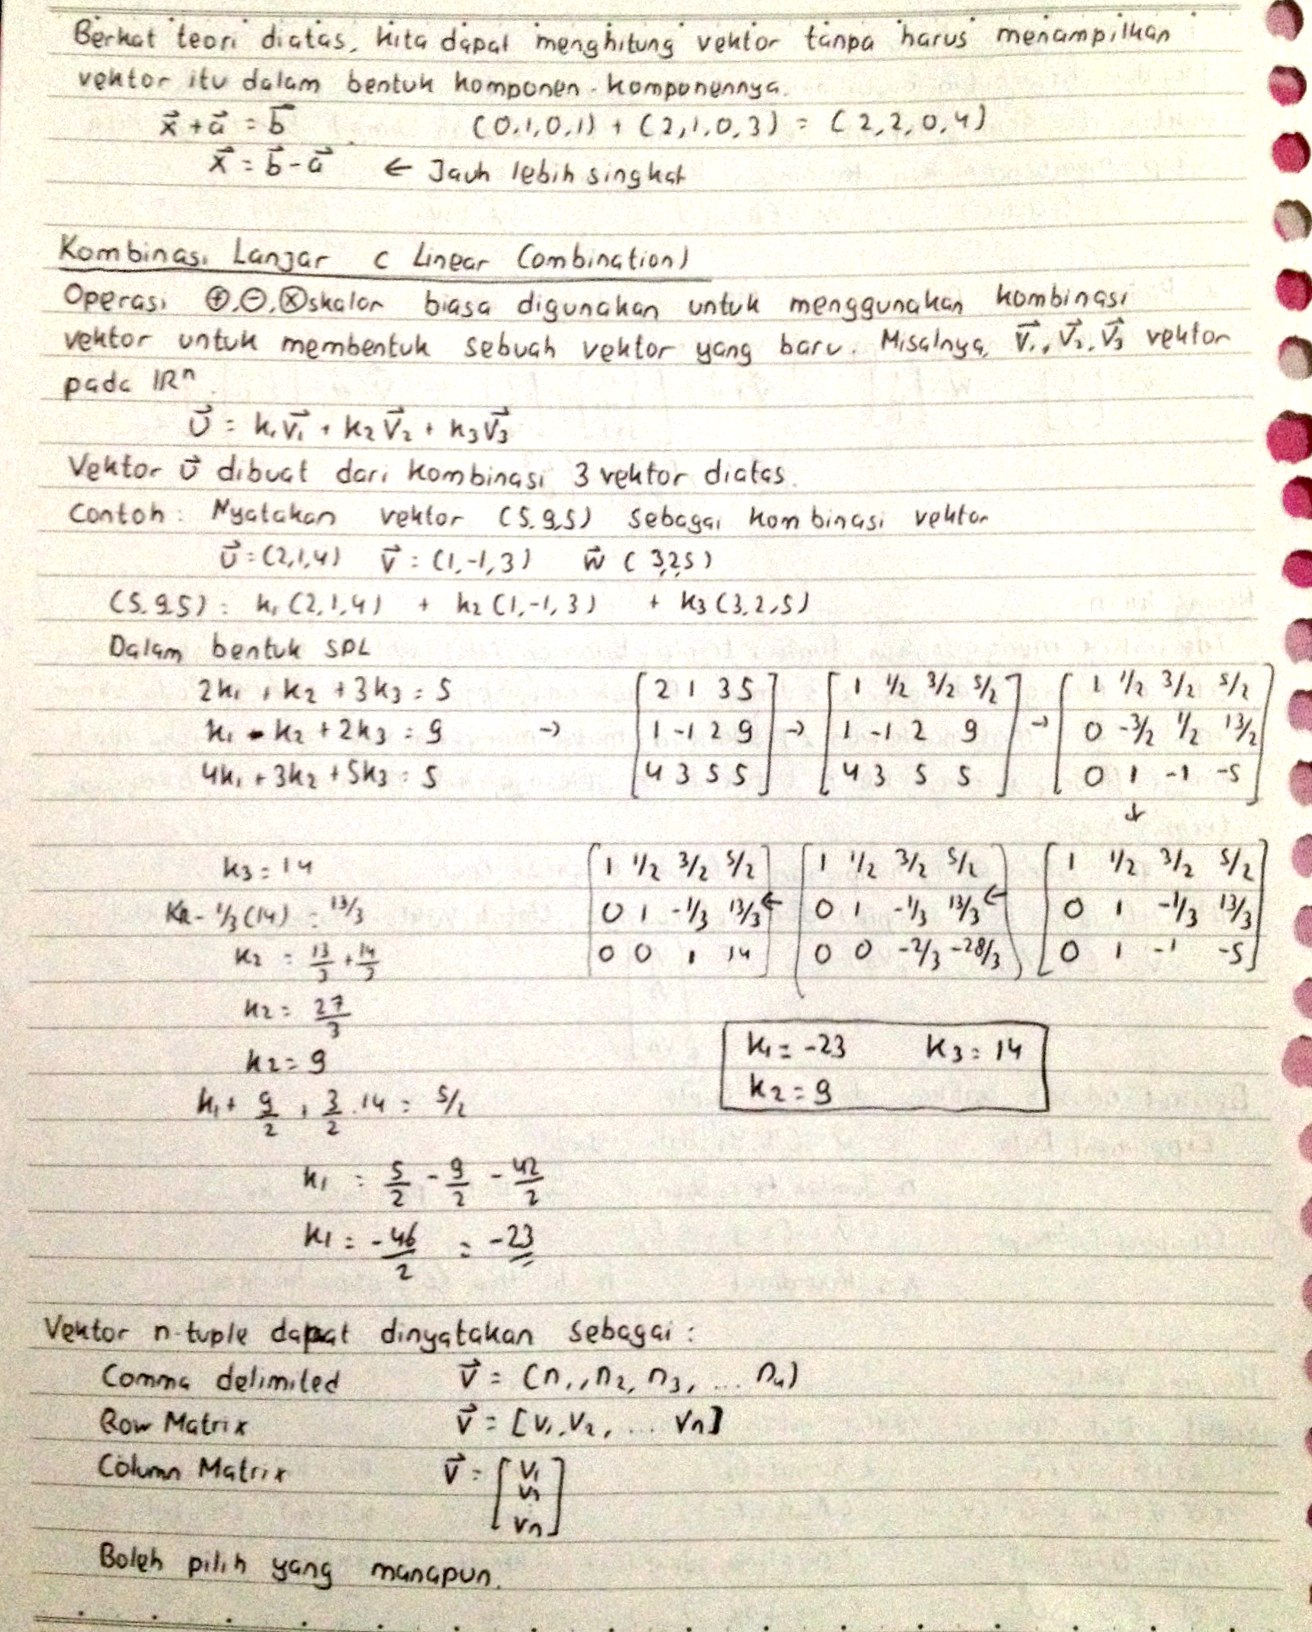 Berkat teori diatas, kita dapat menghitung vektor tanpa harus menampilkan
vektor itu dalam bentuk komponen-komponennya.
x⃗ + a⃗ = b⃗ (0,1,0,1) + (2,1,0,3) = (2,2,0,4)
x⃗ = b⃗ - a⃗ ← Jauh lebih singkat
Kombinasi Lanjar (Linear Combination)
Operasi ⊕,⊖,⊗skalar biasa digunakan untuk menggunakan kombinasi
vektor untuk membentuk sebuah vektor yang baru. Misalnya, v⃗₁, v⃗₂, v⃗₃ vektor
pada ℝⁿ
u⃗ = k₁v⃗₁ + k₂v⃗₂ + k₃v⃗₃
Vektor u⃗ dibuat dari kombinasi 3 vektor diatas.
Contoh: Nyatakan vektor (5,9,5) sebagai kombinasi vektor
u⃗ = (2,1,4) v⃗ = (1,-1,3) w⃗ (3,2,5)
(5,9,5) = k₁(2,1,4) + k₂(1,-1,3) + k₃(3,2,5)
Dalam bentuk SPL
2k₁ + k₂ + 3k₃ = 5 [2 1 3 5] [1 1/2 3/2 5/2] [1 1/2 3/2 5/2]
k₁ - k₂ + 2k₃ = 9 → [1 -1 2 9] → [1 -1 2 9] → [0 -3/2 1/2 13/2]
4k₁ + 3k₂ + 5k₃ = 5 [4 3 5 5] [4 3 5 5] [0 1 -1 -5]
↓
k₃ = 14 [1 1/2 3/2 5/2] [1 1/2 3/2 5/2] [1 1/2 3/2 5/2]
k₂ - 1/3(14) = 13/3 [0 1 -1/3 13/3] ← [0 1 -1/3 13/3] ← [0 1 -1/3 13/3]
k₂ = 13/3 + 14/3 [0 0 1 14] [0 0 -2/3 -28/3] [0 1 -1 -5]
k₂ = 27/3
k₁ = -23 k₃ = 14
k₂ = 9
k₂ = 9
k₁ + 9/2 + 3/2 . 14 = 5/2
k₁ = 5/2 - 9/2 - 42/2
k₁ = -46/2 = -23
Vektor n-tuple dapat dinyatakan sebagai :
Comma delimited v⃗ = (n₁, n₂, n₃, ... n₄)
Row Matrix v⃗ = [v₁, v₂, ... vn]
Column Matrix v⃗ = [v₁
v₂
vn]
Boleh pilih yang manapun.